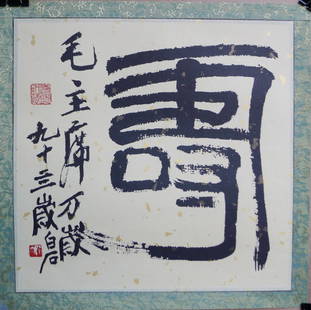 壽
毛主席万歲
九十三歲白石